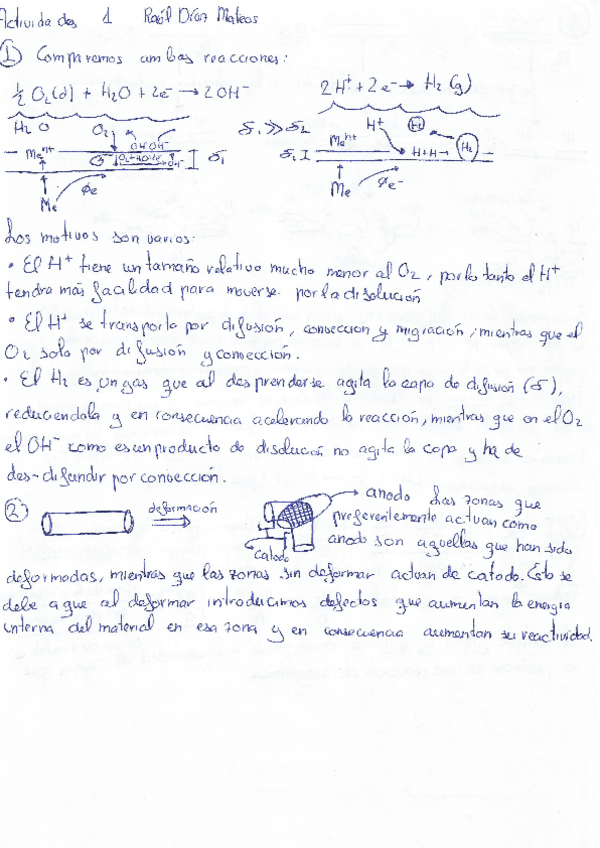 Actividades 1 Raúl Díaz Mateos
① Comparemos ambas reacciones:
½ O₂(d) + H₂O + 2e⁻ → 2OH⁻
2H⁺ + 2e⁻ → H₂ (g)
H₂O O₂ OH⁻ OH⁻ δ₁ ≫ δ₂ H⁺ H₂
Meⁿ⁺ δ₁ δ₂ Meⁿ⁺ H+H→ H₂
Me φe⁻ Me φe⁻
Los motivos son varios:
• El H⁺ tiene un tamaño relativo mucho menor al O₂, por lo tanto el H⁺
tendra más facilidad para moverse por la disolución
• El H⁺ se transporta por difusión, conveccion y migración, mientras que el
O₂ solo por difusión y convección.
• El H₂ es un gas que al desprenderse agita la capa de difusión (δ),
reduciendola y en consecuencia acelerando la reacción, mientras que en el O₂
el OH⁻ como es un producto de disolución no agita la capa y ha de
des-difundir por convección.
② deformación → anodo Las zonas que
preferentemente actuan como
catodo anodo son aquellas que han sido
deformadas, mientras que las zonas sin deformar actuan de catodo. Esto se
debe a que al deformar introducimos defectos que aumentan la energia
interna del material en esa zona y en consecuencia aumentan su reactividad.